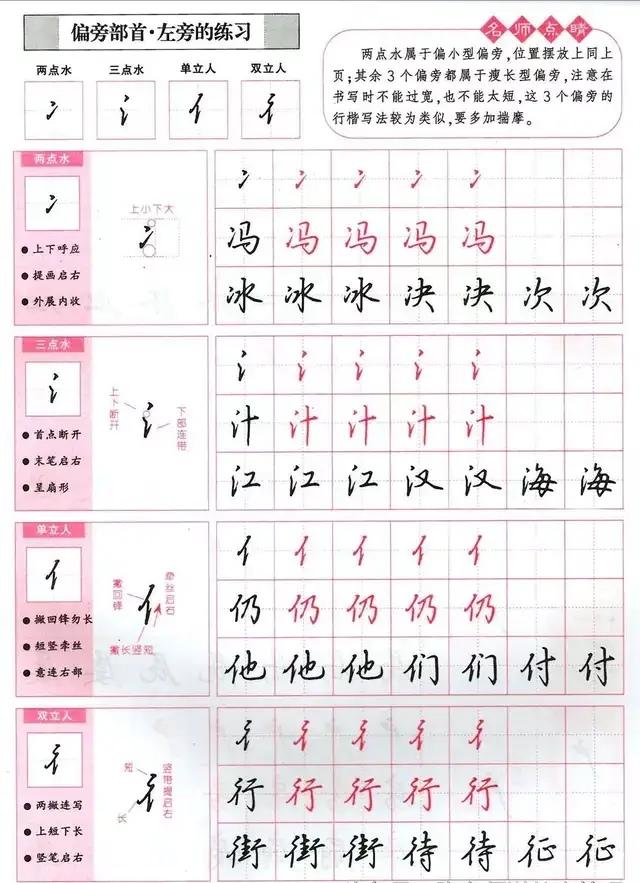 偏旁部首·左旁的练习
名师点睛
两点水属于偏小型偏旁,位置摆放上同上
页;其余3个偏旁都属于瘦长型偏旁,注意在
书写时不能过宽,也不能太短,这3个偏旁的
行楷写法较为类似,要多加揣摩。
两点水 三点水 单立人 双立人
冫 氵 亻 彳
两点水
冫
上下呼应
提画启右
外展内收
上小下大
冫
冫 冫 冫 冫 冫
冯 冯 冯 冯 冯
冰 冰 冰 决 决 次 次
三点水
氵
首点断开
末笔启右
呈扇形
上下断开
氵
下部连带
氵 氵 氵 氵 氵
汁 汁 汁 汁 汁
江 江 江 汉 汉 海 海
单立人
亻
撇回锋勿长
短竖牵丝
意连右部
撇回锋
亻
牵丝启右
撇长竖短
亻 亻 亻 亻 亻
仍 仍 仍 仍 仍
他 他 他 们 们 付 付
双立人
彳
两撇连写
上短下长
竖笔启右
短
彳
长
竖带提启右
彳 彳 彳 彳 彳
行 行 行 行 行
街 街 街 待 待 征 征